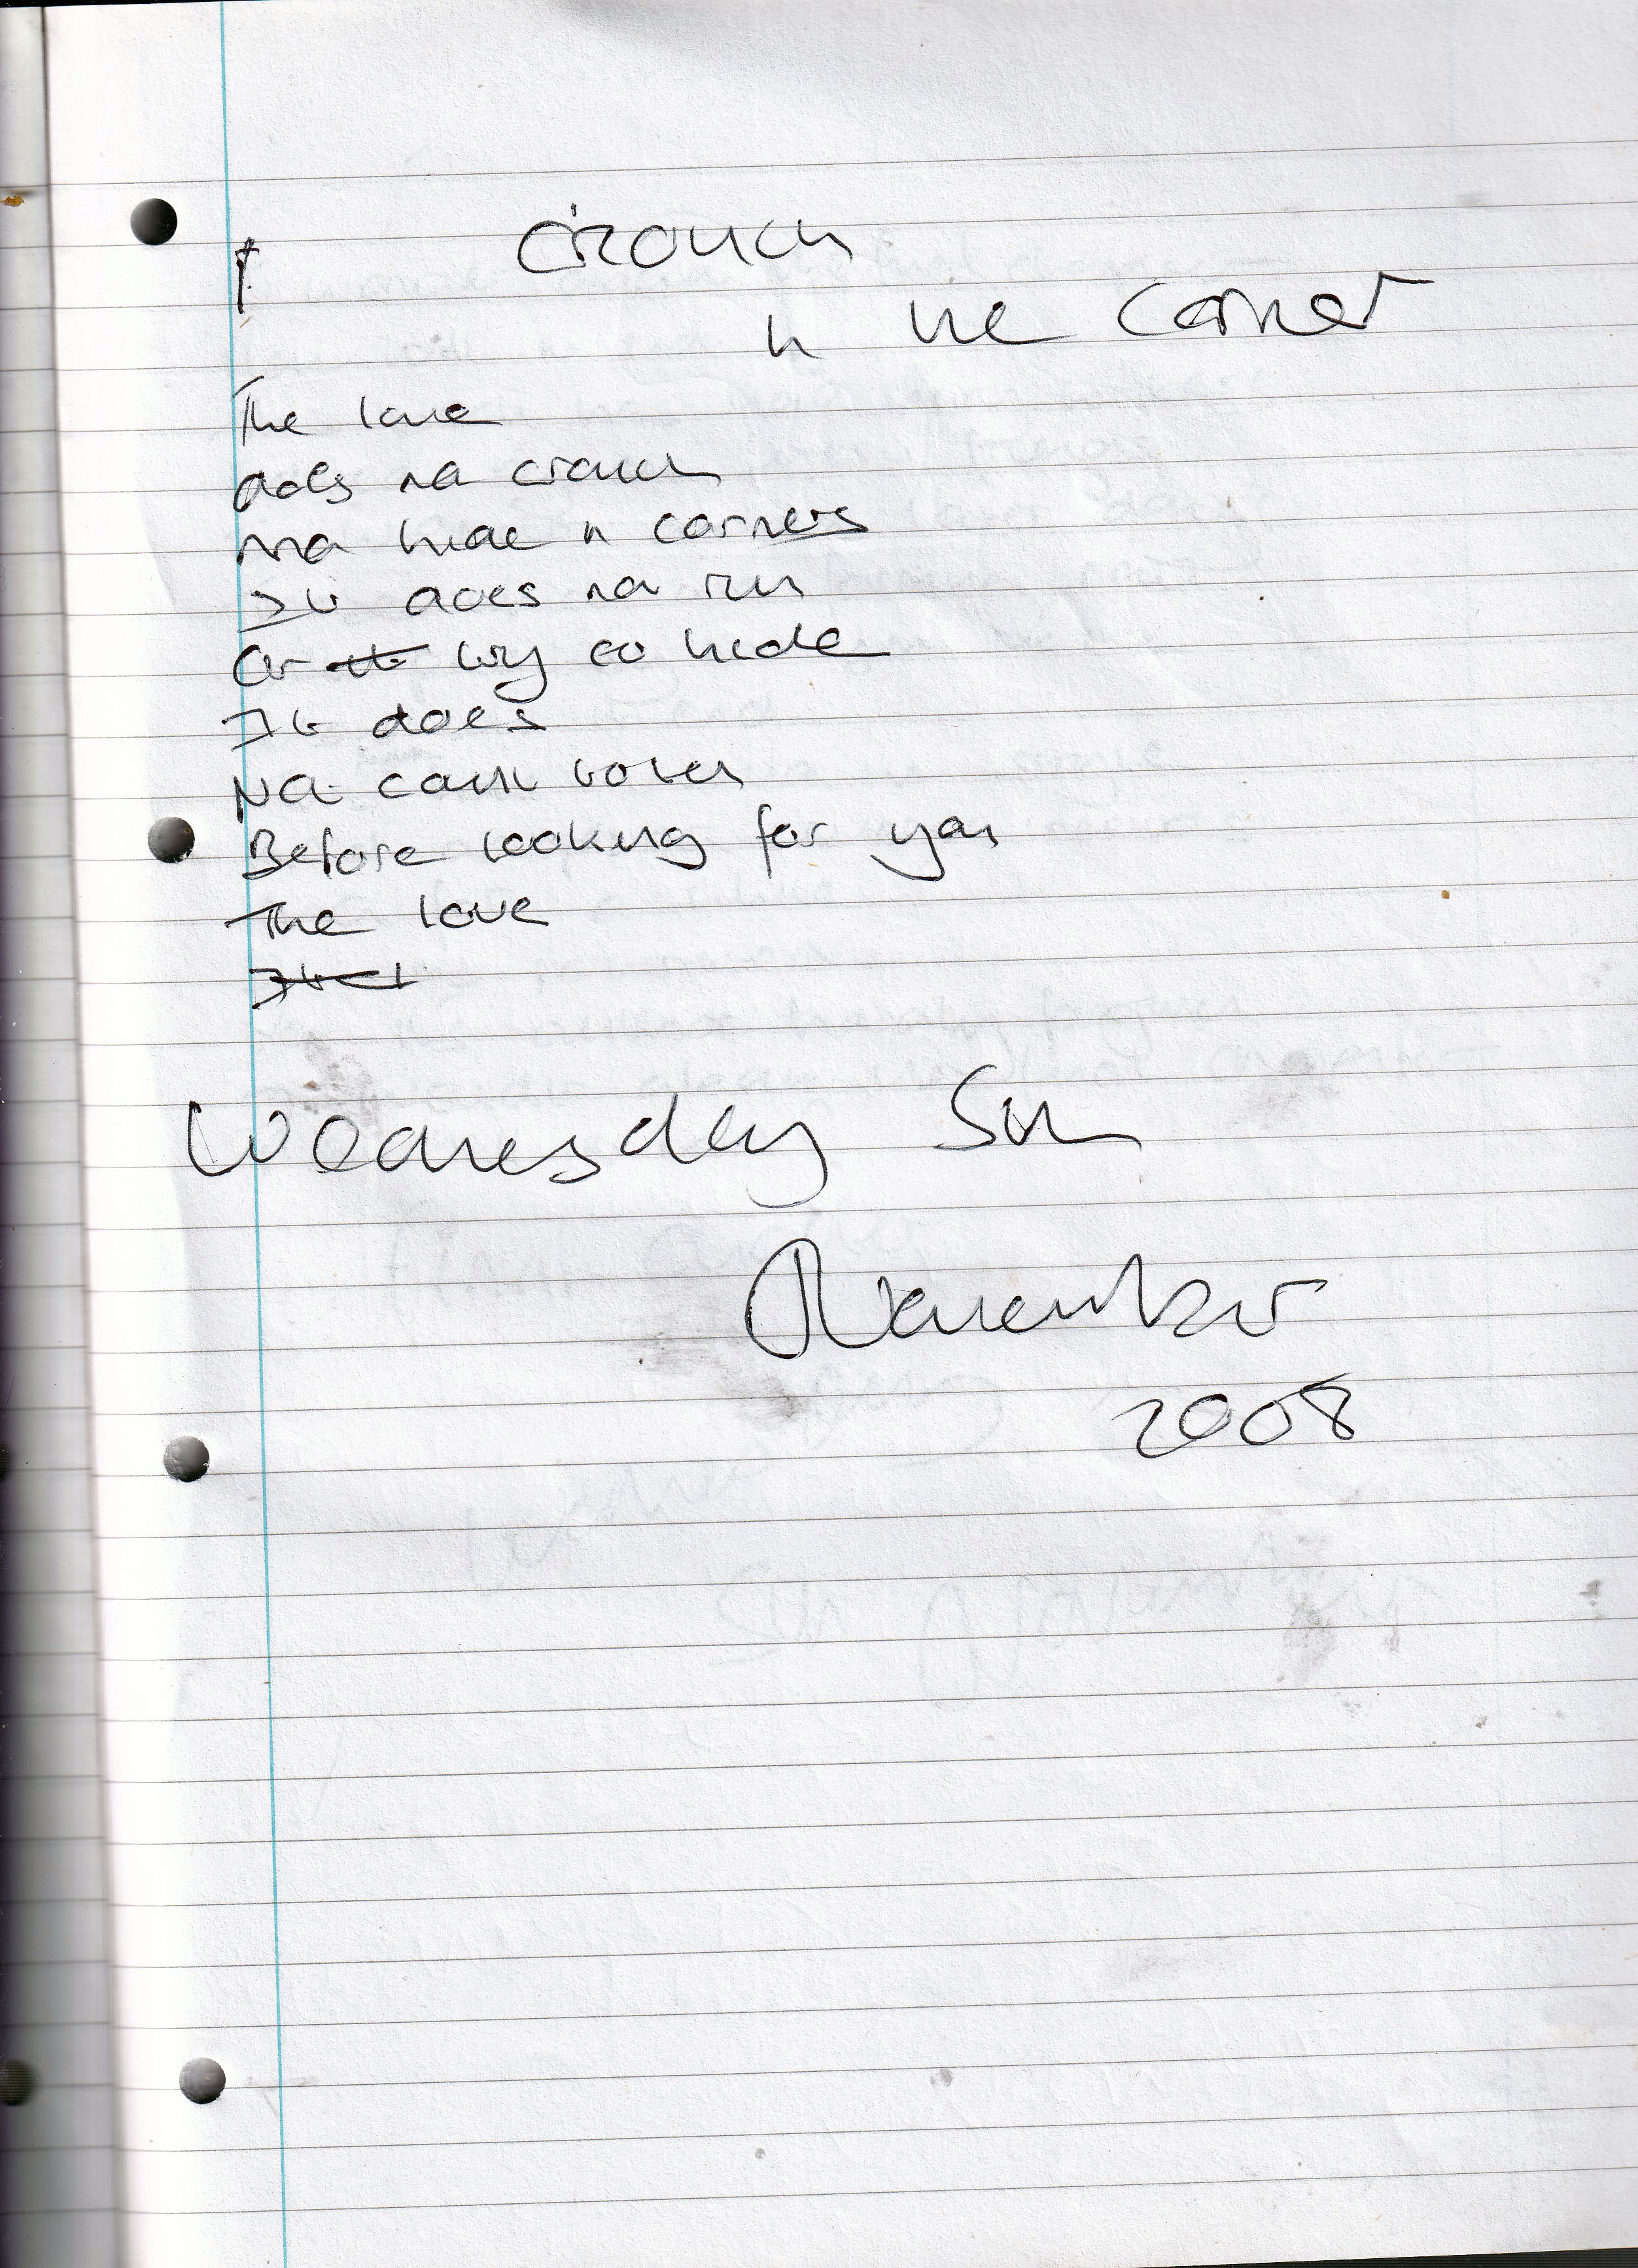 Crouch
in the corner
The love
does not crouch
nor hide in corners
It does not run
Or try to hide
It does
Not count to ten
Before looking for you
The love
Wednesday 5th
November
2008